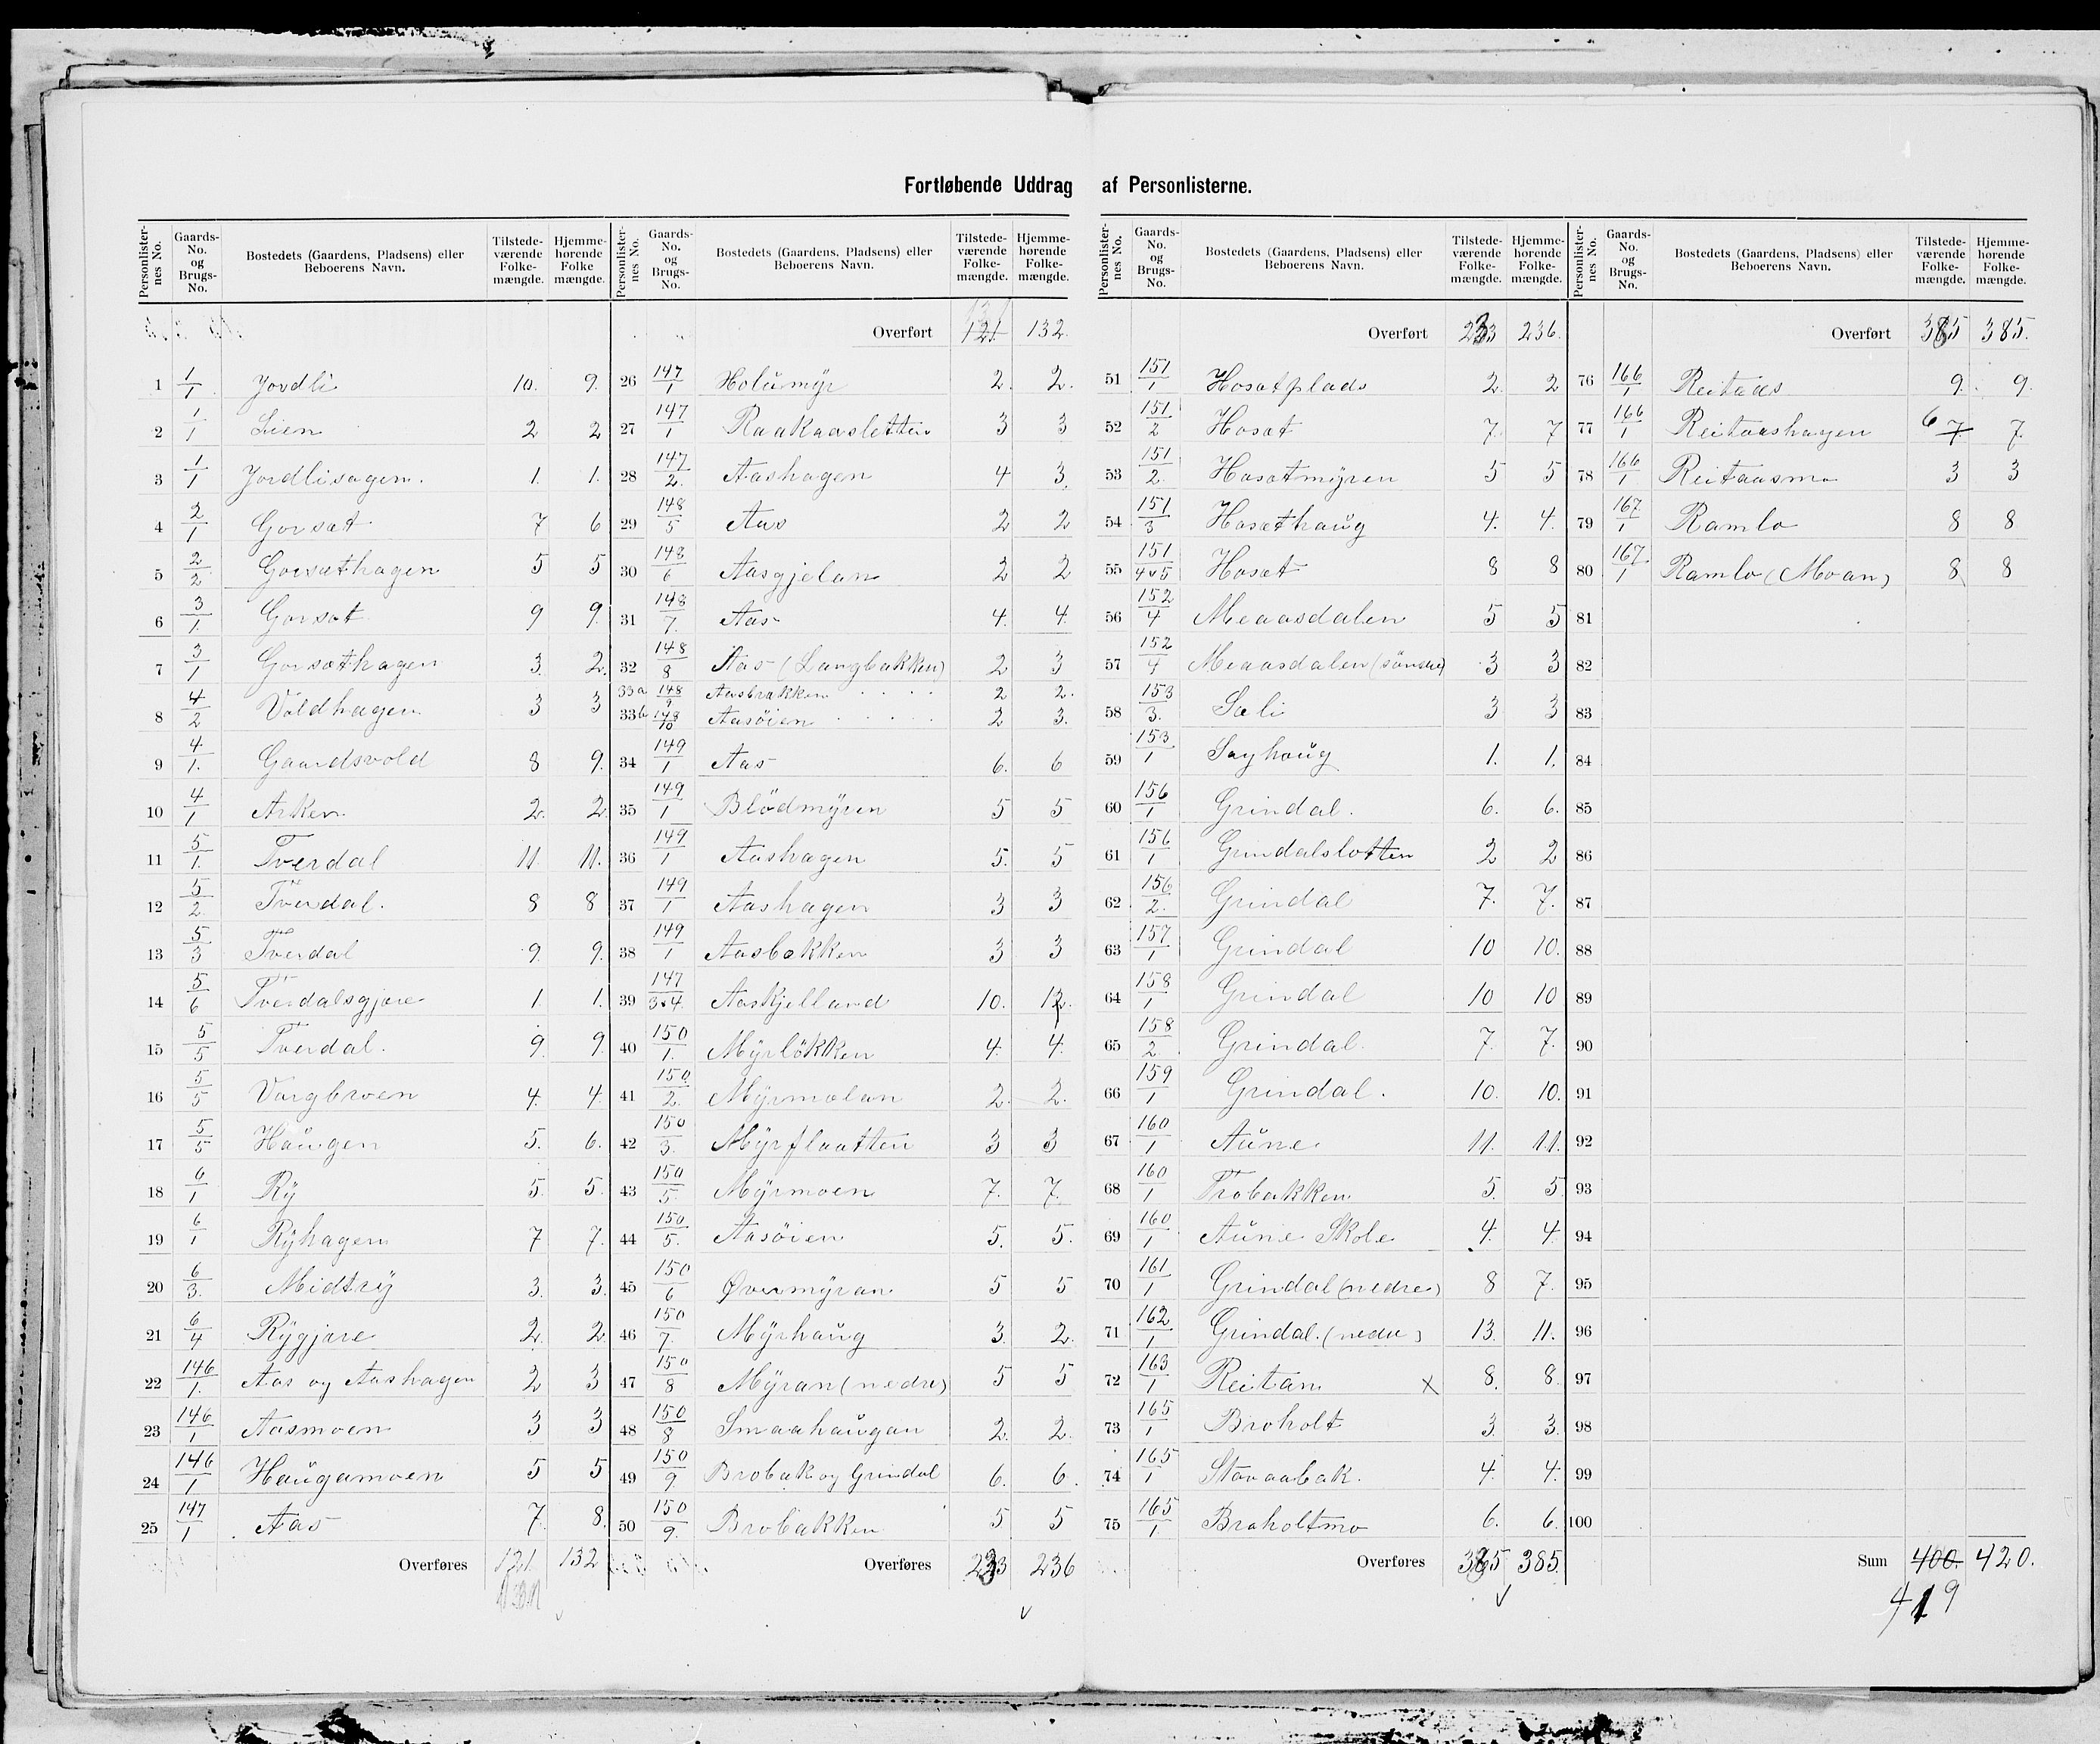 Fortløbende Uddrag af Personlisterne.
Personlister-nes No. | Gaards-No. og Brugs-No. | Bostedets (Gaardens, Pladsens) eller Beboerens Navn. | Tilstede-værende Folke-mængde. | Hjemme-hørende Folke mængde.
1 1/1 Jordli 10. 9.
2 1/1 Lien 2 2
3 1/1 Jordlisagen. 1. 1.
4 2/1 Gorsæt 7 6
5 2/2 Gorsæthagen 5 5
6 3/1. Gorsæt 9 9.
7 3/1 Gorsæthagen 3. 2.
8 4/2 Voldhagen 3 3
9 4/1. Gaardsvold 8 9.
10 4/1 Arken 2. 2.
11 5/1. Tverdal 11. 11.
12 5/2. Tverdal. 8 8
13 5/3 Tverdal 9. 9.
14 5/6 Tverdalsgjære 1 1.
15 5/5 Tverdal. 9. 9.
16 5/5 Vargbroen 4. 4.
17 5/5 Haugen 5. 6.
18 6/1 Ry 5. 5.
19 6/1 Ryhagen 7 7.
20 6/3. Midtry 3. 3.
21 6/4 Rygjære 2. 2.
22 146/1. Aas og Aashagen 2 3
23 146/1 Aasmoen 3 3
24 146/1 Haugamoen 5 5
25 147/1 Aas 7. 8.
Overføres 121. 132
Personlister-nes No. | Gaards-No. og Brugs-No. | Bostedets (Gaardens, Pladsens) eller Beboerens Navn. | Tilstede-værende Folke-mængde. | Hjemme-hørende Folke-mængde.
Overført 121. 132.
26 147/1 Holumyr 2. 2.
27 147/1 Raakaasletten 3 3
28 147/2. Aashagen 4 3.
29 148/5 Aas 2 2
30 148/6 Aasgjelan 2 2
31 148/7. Aas 4. 4.
32 148/8 Aas (Langbakken) 2 3
33a 148/9 Aasbrakken 2 2.
33b 148/10 Aasøien 2 3.
34 149/1 Aas 6. 6
35 149/1 Blödmyren 5 5
36 149/1 Aashagen 5. 5
37 149/1 Aashagen 3 3
38 149/1 Aasbakken 3 3
39 147/3&4. Aaskjelland 10. 12.
40 150/1. Myrløkken 4. 4.
41 150/2. Myrmælan 2. 2.
42 150/3. Myrflaatten 3 3
43 150/5. Myrmoen 7. 7.
44 150/5. Aasøien 5. 5.
45 150/6 Øvermyran 5 5
46 150/7. Myrhaug 3. 2.
47 150/8 Myran (nedre) 5 5
48 150/8 Smaahaugan 2. 2.
49 150/9. Brobak og Grindal 6. 6.
50 150/9. Brobakken 5 5
Overføres 233 236
Personlister-nes No. | Gaards-No. og Brugs-No. | Bostedets (Gaardens, Pladsens) eller Beboerens Navn. | Tilstede-værende Folke-mængde. | Hjemme-hørende Folke-mængde.
Overført 233 236.
51 151/1 Hosætplads 2. 2
52 151/2 Hosæt 7. 7
53 151/2. Hosætmyren 5 5
54 151/3 Hosæthaug 4. 4.
55 151/4&5 Hosæt 8 8
56 152/4 Meaasdalen 5 5
57 152/4 Meaasdalen (söndre) 3 3
58 153/3. Sæli 3 3
59 153/1 Sayhaug 1. 1.
60 156/1 Grindal. 6. 6.
61 156/1 Grindalsløtten 2 2
62 156/2. Grindal 7. 7.
63 157/1 Grindal 10 10.
64 158/1 Grindal 10 10
65 158/2 Grindal. 7. 7.
66 159/1 Grindal. 10. 10.
67 160/1 Aune 11. 11.
68 160/1 Trøbakken 5. 5
69 160/1 Aune Skole 4. 4.
70 161/1 Grindal (nedre) 8 7.
71 162/1 Grindal. (nedre) 13. 11.
72 163/1 Reitan x 8. 8.
73 165/1 Broholt 3 3.
74 165/1 Stavaabak. 4. 4.
75 165/1 Broholtmo 6. 6.
Overføres 385 385.
Personlister-nes No. | Gaards-No. og Brugs-No. | Bostedets (Gaardens, Pladsens) eller Beboerens Navn. | Tilstede-værende Folke-mængde. | Hjemme-hørende Folke-mængde.
Overført 385 385.
76 166/1 Reitaas 9. 9.
77 166/1 Reitaashagen 6 7 7.
78 166/1 Reitaasmo 3 3
79 167./1 Ramlo 8 8
80 167/1 Ramlo (Moan) 8 8
81
82
83
84
85
86
87
88
89
90
91
92
93
94
95
96
97
98
99
100
Sum 400. 420.
419